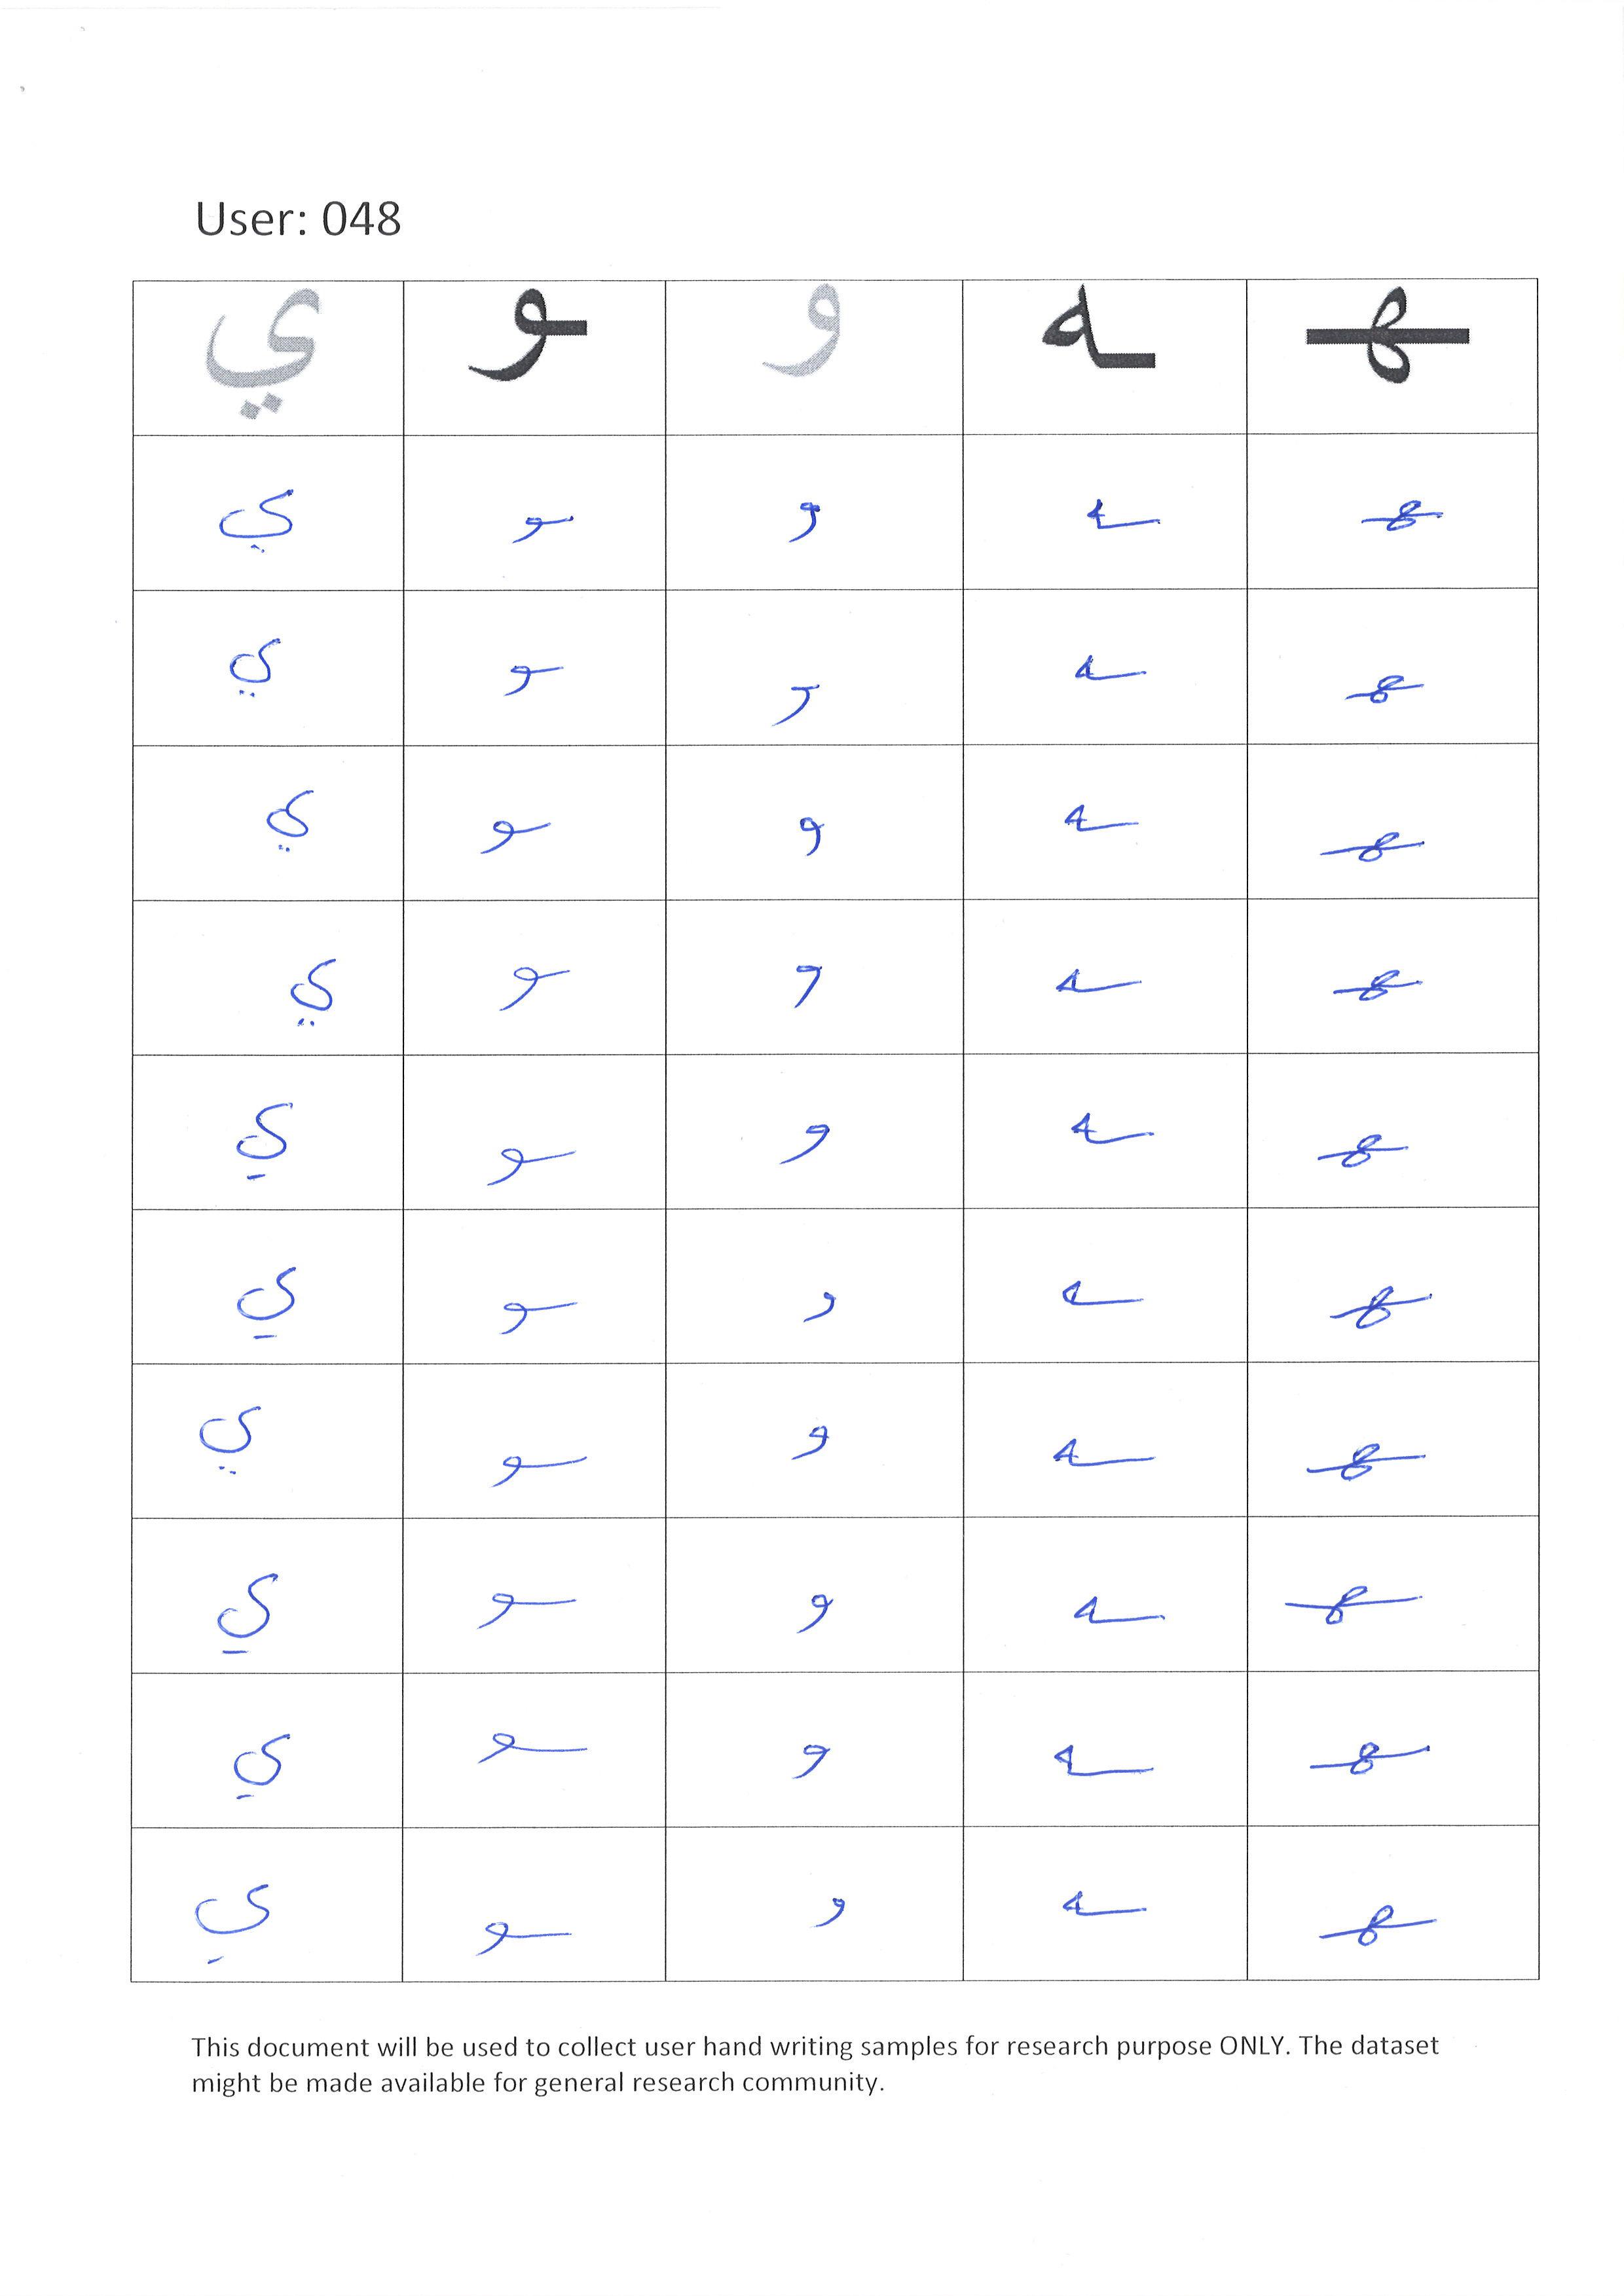 User: 048
ي ـو و ـه ـهـ
ي ـو و ـه ـهـ
ي ـو و ـه ـهـ
ي ـو و ـه ـهـ
ي ـو و ـه ـهـ
ي ـو و ـه ـهـ
ي ـو و ـه ـهـ
ي ـو و ـه ـهـ
ي ـو و ـه ـهـ
ي ـو و ـه ـهـ
ي ـو و ـه ـهـ
This document will be used to collect user hand writing samples for research purpose ONLY. The dataset
might be made available for general research community.